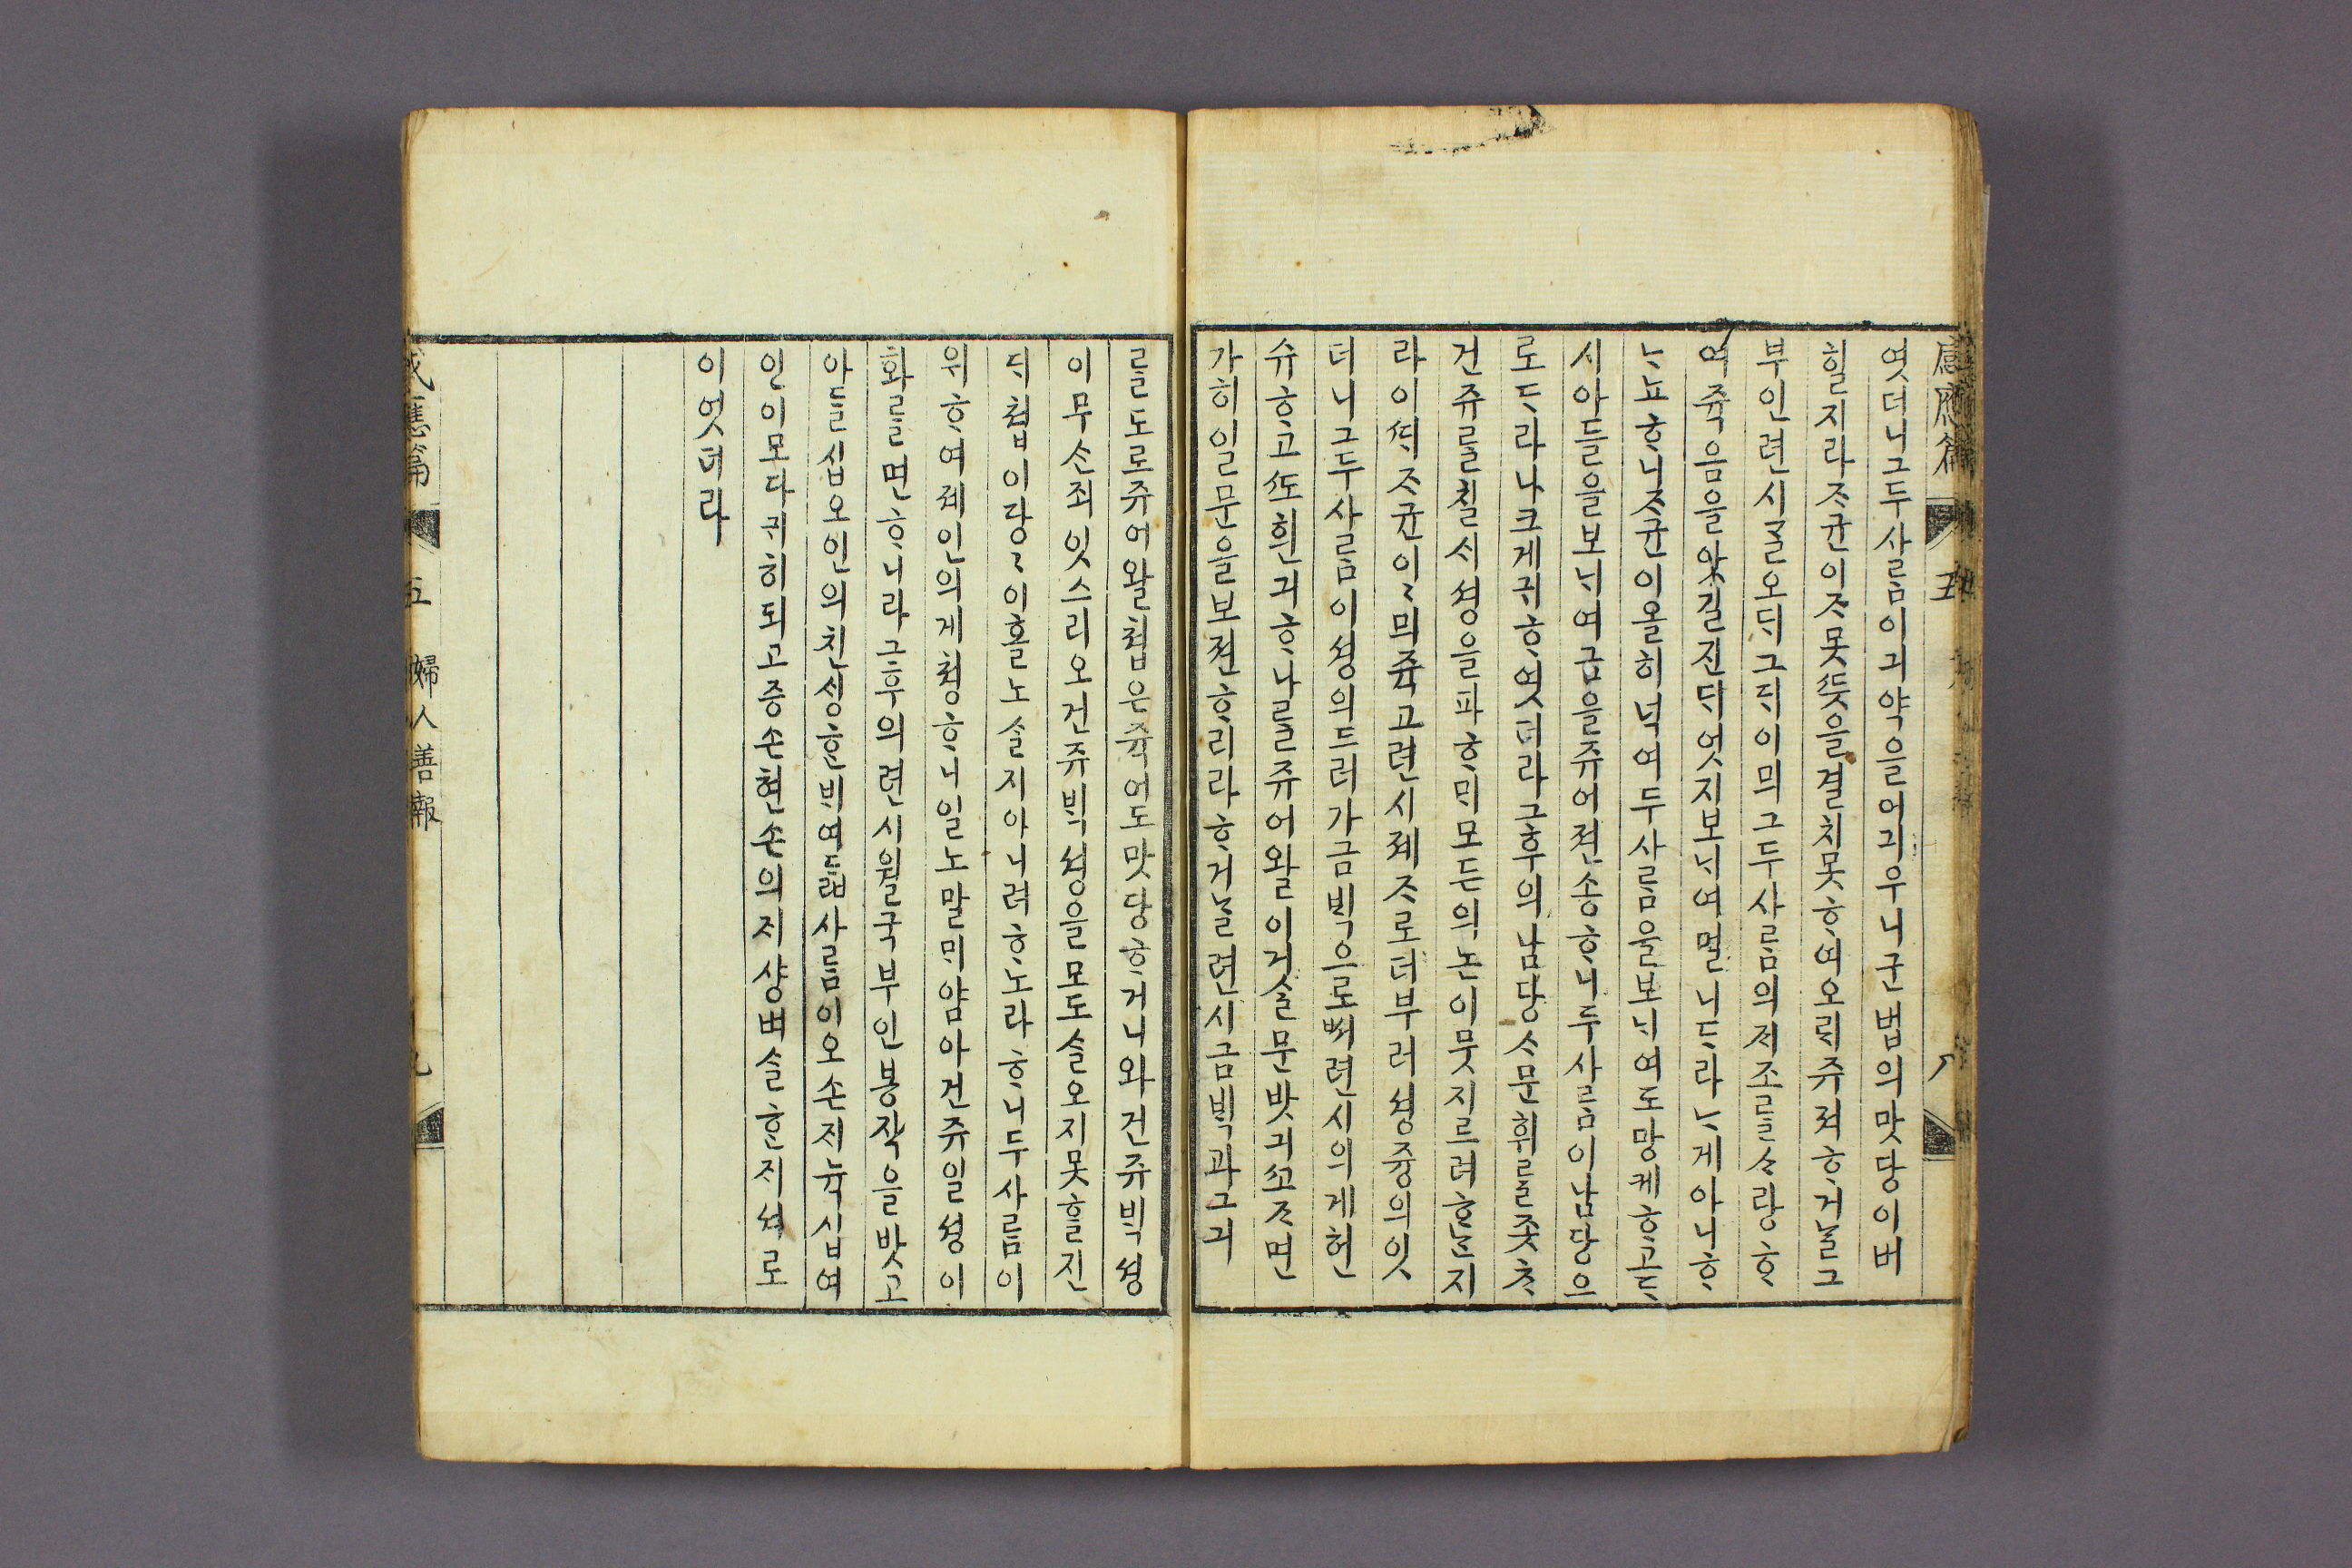 感應篇 五 八
엿더니 그 두 사ᄅᆞᆷ이 긔약을 어긔우니 군법의 맛당이 버
힐지라 ᄌᆞ균이 ᄌᆞ못 ᄯᅳᆺ을 결치 못ᄒᆞ여 오ᄅᆡ 쥬져ᄒᆞ거ᄂᆞᆯ 그
부인 련시 ᄀᆞᆯ오ᄃᆡ 그ᄃᆡ 이믜 그 두 사ᄅᆞᆷ의 ᄌᆡ조ᄅᆞᆯ ᄉᆞ랑ᄒᆞ
여 쥭음을 앗길진ᄃᆡ 엇지 보ᄂᆡ여 멀니 ᄃᆞ라ᄂᆞ게 아니ᄒᆞ
ᄂᆞ뇨 ᄒᆞ니 ᄌᆞ균이 올히 넉여 두 사ᄅᆞᆷ을 보ᄂᆡ여 도망케 ᄒᆞ고 ᄃᆞ
시 아ᄃᆞᆯ을 보ᄂᆡ여 금을 쥬어 젼송ᄒᆞ니 두 사ᄅᆞᆷ이 남당으
로 ᄃᆞ라나 크게 귀ᄒᆞ엿더라 그 후의 남당 ᄉᆞ문휘ᄅᆞᆯ 좃ᄎᆞ
건쥬ᄅᆞᆯ 칠ᄉᆡ 셩을 파ᄒᆞᄆᆡ 모든 의논이 뭇지르려 ᄒᆞᄂᆞᆫ지
라 이ᄯᆡ ᄌᆞ균이 이믜 쥭고 련시 졔ᄌᆞ로 더부러 셩즁의 잇
더니 그 두 사ᄅᆞᆷ이 셩의 드러가 금ᄇᆡᆨ으로ᄡᅥ 련시의게 헌
슈ᄒᆞ고 ᄯᅩ 흰 긔 ᄒᆞ나ᄅᆞᆯ 쥬어 왈 이거ᄉᆞᆯ 문 밧긔 ᄭᅩᄌᆞ면
가히 일문을 보젼ᄒᆞ리라 ᄒᆞ거ᄂᆞᆯ 련시 금ᄇᆡᆨ과 그 긔
ᄅᆞᆯ 도로 쥬어 왈 쳡은 쥭어도 맛당ᄒᆞ거니와 건쥬 ᄇᆡᆨ셩
이 무ᄉᆞᆫ 죄 잇스리오 건쥬 ᄇᆡᆨ셩을 모도 ᄉᆞᆯ오지 못ᄒᆞᆯ진
ᄃᆡ 쳡이 당당이 홀노 ᄉᆞᆯ지 아니려 ᄒᆞ노라 ᄒᆞ니 두 사ᄅᆞᆷ이
위ᄒᆞ여 졔인의게 쳥ᄒᆞ니 일노 말ᄆᆡ암아 건쥬 일셩이
화ᄅᆞᆯ 면ᄒᆞ니라 그 후의 련시 월국부인 봉작을 밧고
아ᄃᆞᆯ 십오인의 친ᄉᆡᆼᄒᆞᆫ ᄇᆡ 여ᄃᆞᆲ 사ᄅᆞᆷ이오 손ᄌᆡ 뉵십여
인이 모다 귀히 되고 증손 현손의 ᄌᆡ샹 벼ᄉᆞᆯᄒᆞᆫ ᄌᆡ ᄯᅥ로
이엇더라
感應篇 五 婦人善報 九